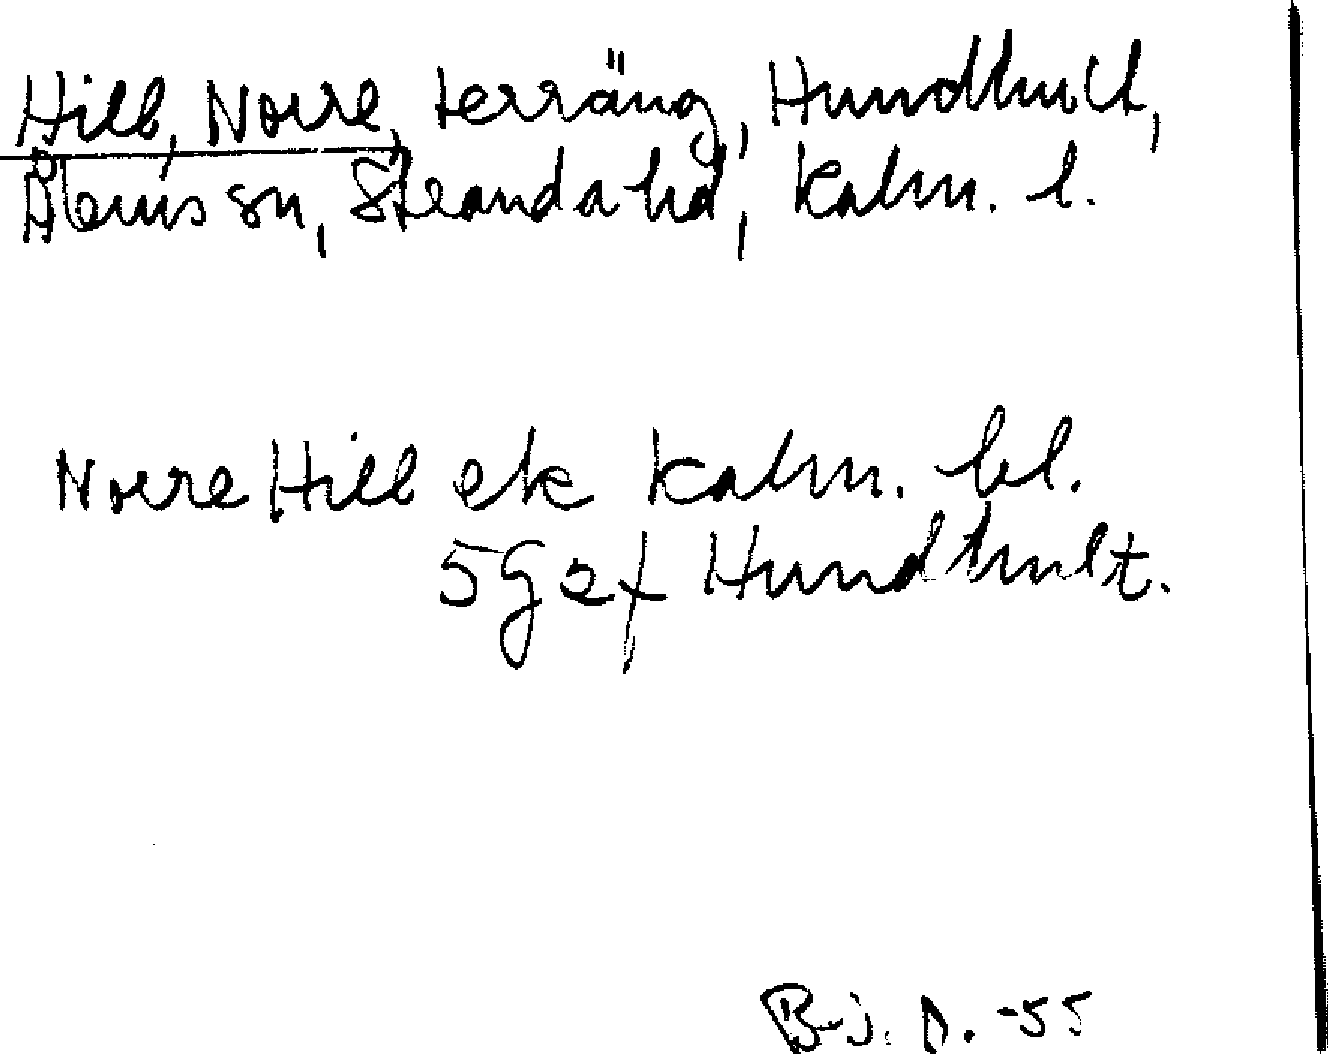 Hill, Norre, terräng, Hundhult,
Ålems sn, Stranda hd, Kalm. l.
Norre Hill ek Kalm. bl.
5G2f Hundhult.
B-j. D. -55